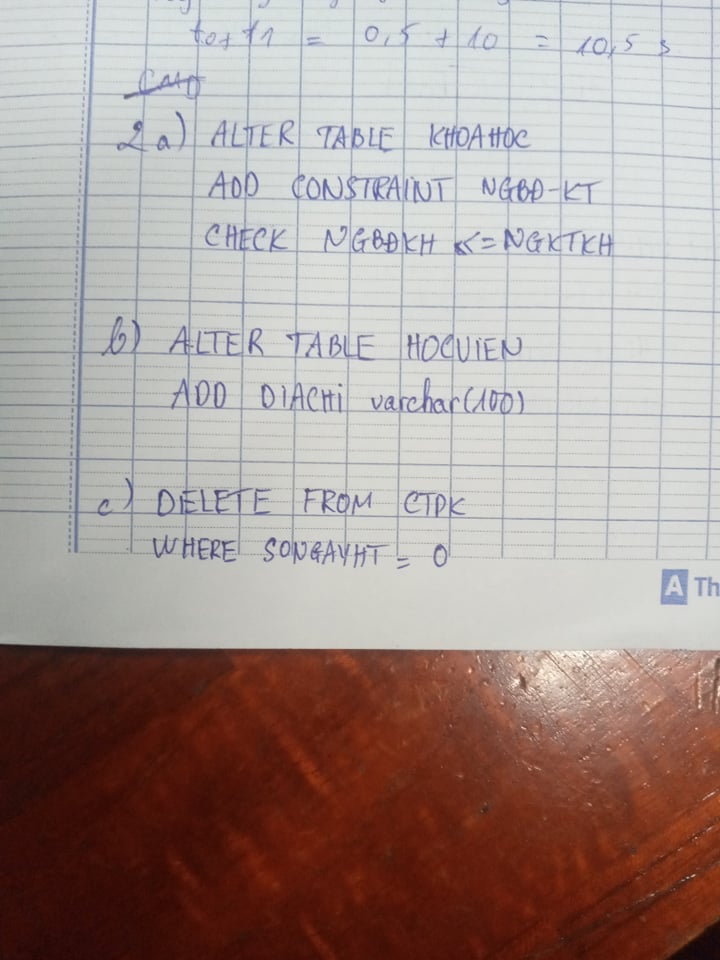 t0+ t1 = 0,5 + 10 = 10,5 s
2a) ALTER TABLE KHOAHOC
ADD CONSTRAINT NGBĐ-KT
CHECK NGBĐKH <= NGKTKH
b) ALTER TABLE HOCVIEN
ADD DIACHI varchar(100)
c) DELETE FROM CTDK
WHERE SONGAYHT = 0
A Th